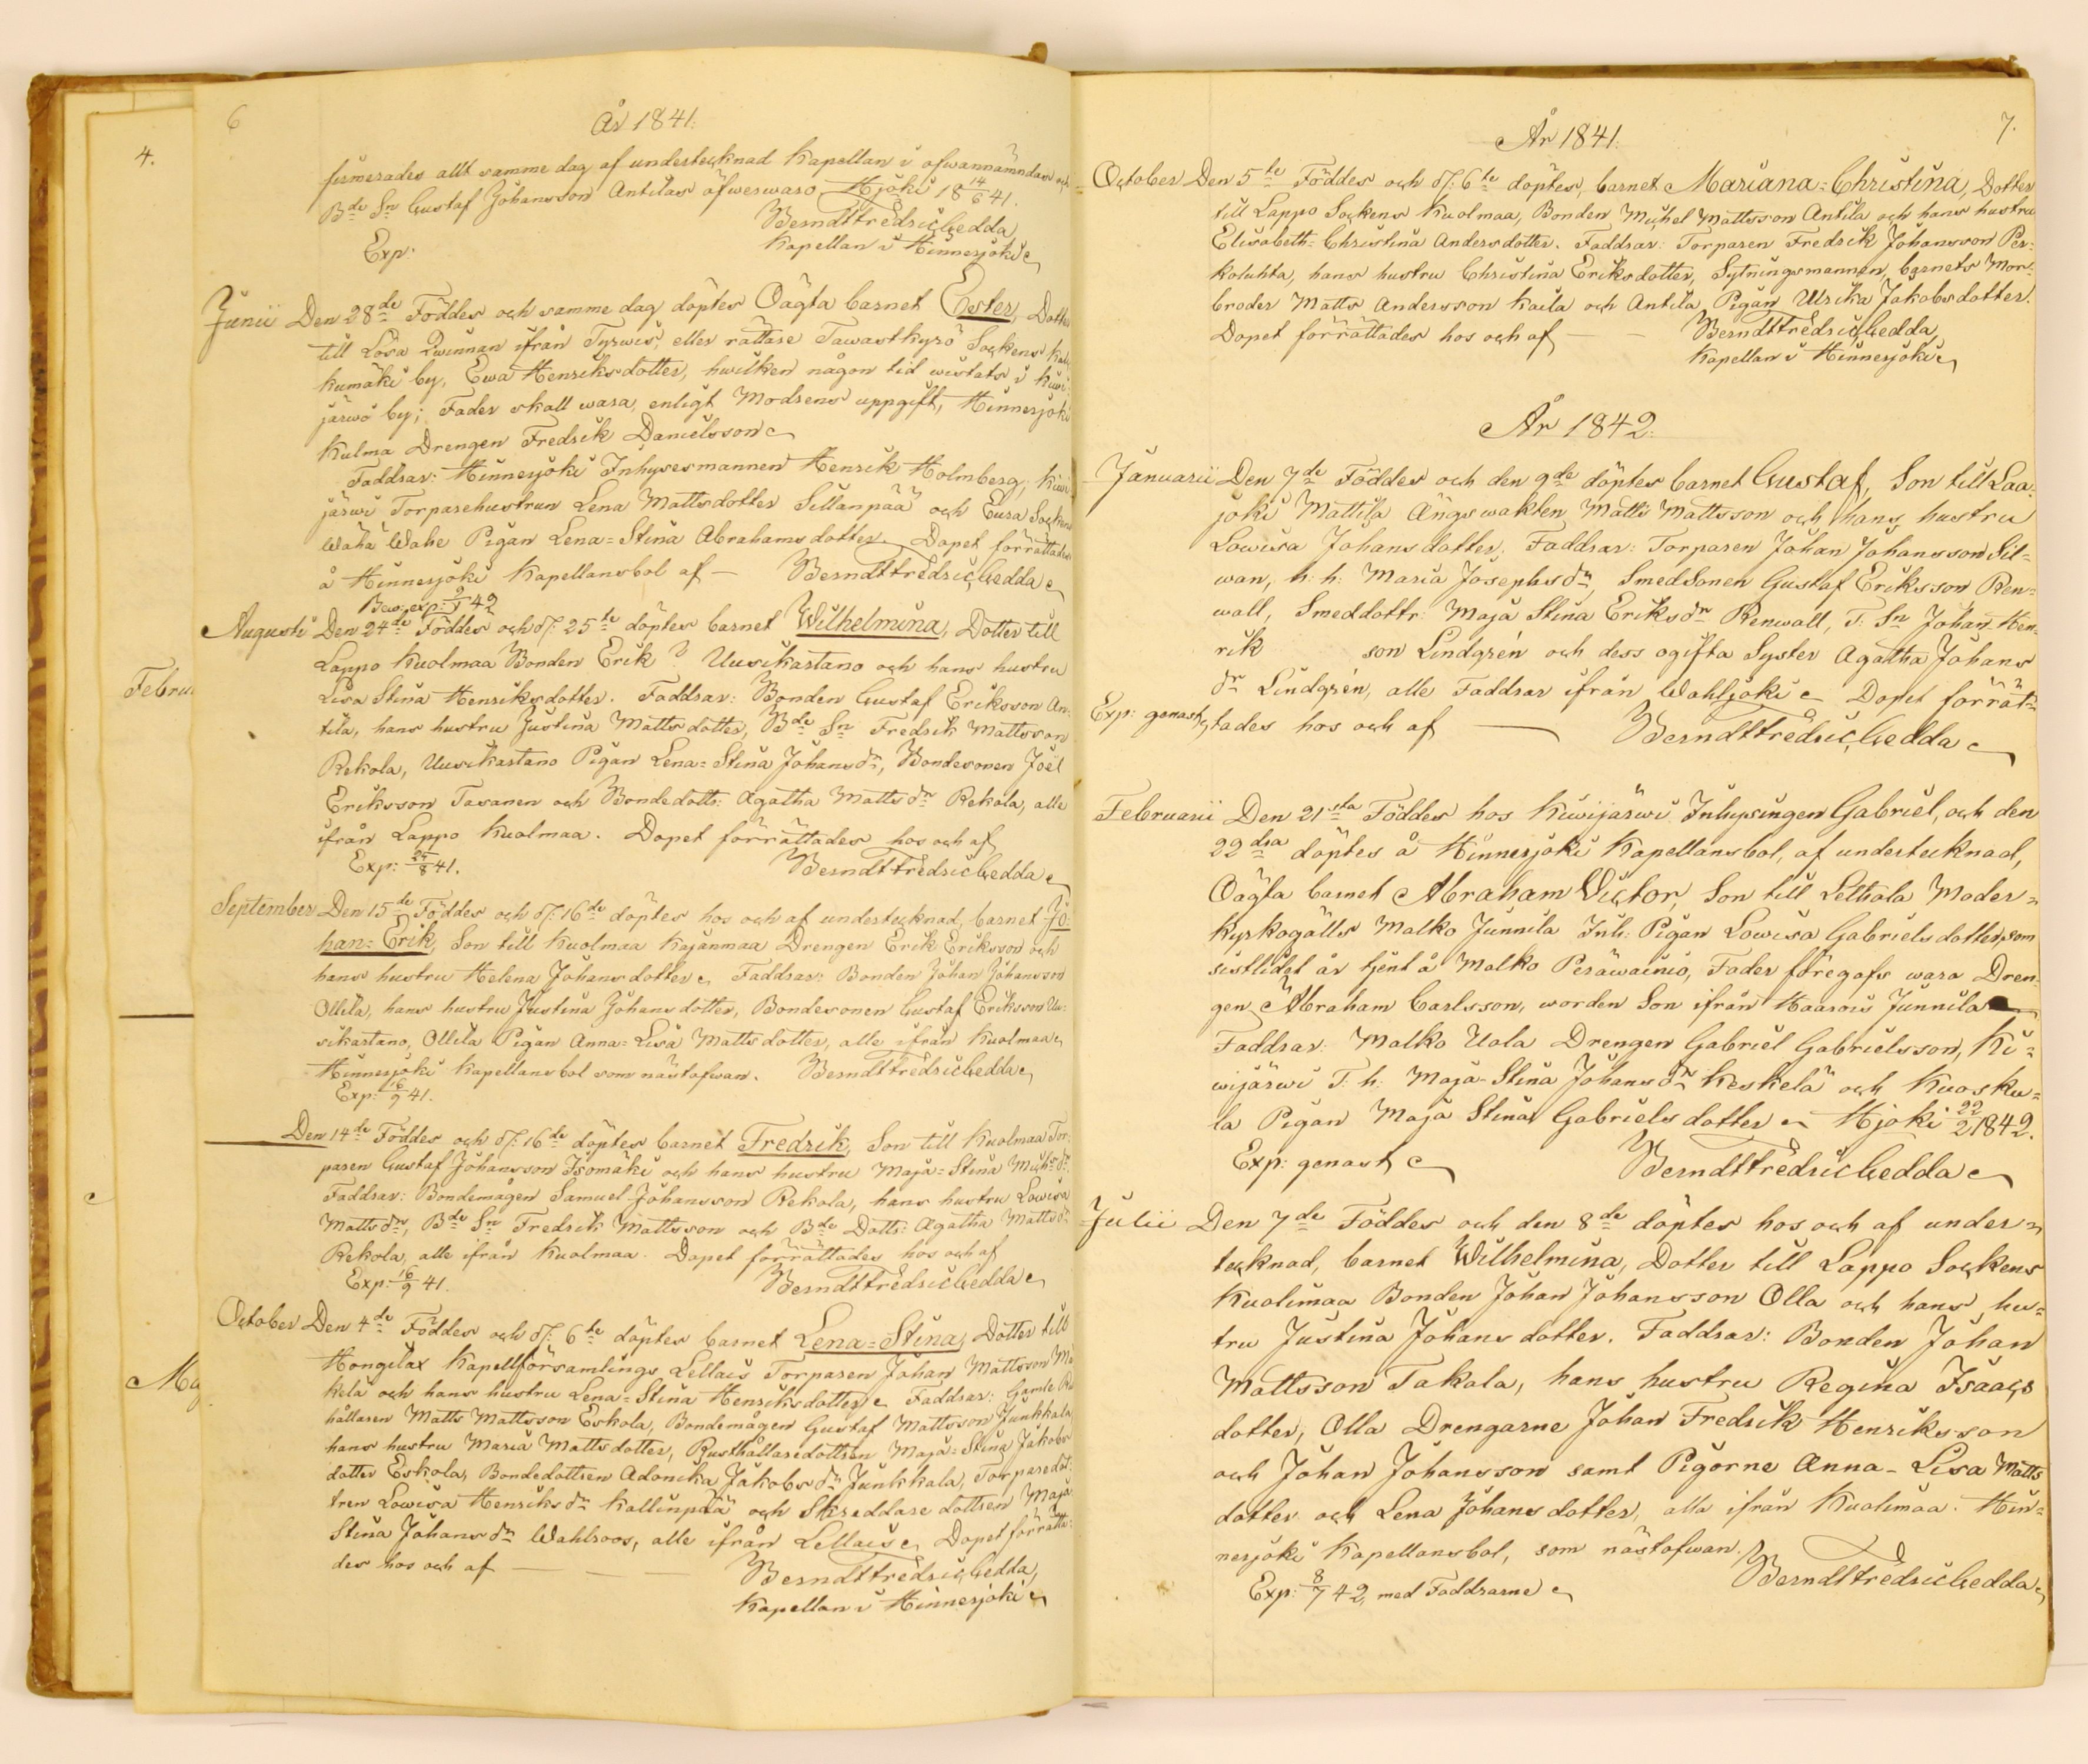 4.
Febru
Ma
6
År 1841.
firmerades allt samme dag af undertecknad Kapellan i ofwannämndas och
Bde Sn Gustaf Johansson Antilas öfwerwaro. Hjoki 18 14/6 41.
Berndt Fredric Gedda,
Exp:
Kapellan i Hinnerjoki
Junii Den 28de Föddes och samme dag döptes Oägta barnet Ester, Dotter
till Lösa Qwinnan ifrån Tyrwis, eller rättare Tawastkyrö Sockens
kumäki by, Ewa Henriksdotter, hwilken någon tid wistats i Kiwi
järwi by; Fader skall wara, enligt Modrens uppgift, Hinnerjoki
Kulma Drengen Fredrik Danielsson
Faddrar: Hinnerjoki Inhysesmannen Henrik Holmberg, Kiwi
järwi Torparehustrun Lena Mattsdotter Sillanpää och Eura Sockens
Wähä Wahe Pigan Lena=Stina Abrahamsdotter. Dopet förrättades
å Hinnerjoki Kapellansbol af — Berndt Fredric Gedda
Bew: exp: 9/1 42
Augusti Den 24de Föddes och d: 25te döptes barnet Wilhelmina, Dotter till
Lappo Kuolmaa Bonden Erik ? Uusikartano och hans hustru
Lisa Stina Henriksdotter. Faddrar: Bonden Gustaf Eriksson An=
tila, hans hustru Justina Mattsdotter, Bde Sn Fredrik Mattsson
Rekola, Uusikartano Pigan Lena=Stina Johansdr, Bondesonen Joël
Eriksson Tasanen och Bondedottr: Agatha Mattsdr Rekola, alle
ifrån Lappo Kuolmaa. Dopet förrättades hos och af
Exp: 24/8 41.
Berndt Fredric Gedda
September Den 15de Föddes och d: 16de döptes hos och af undertecknad, barnet Jo=
han=Erik, Son till Kuolmaa Kajanmaa Drengen Erik Eriksson och
hans hustru Helena Johansdotter. Faddrar: Bonden Johan Johansson
Ollila, hans hustru Justina Johansdotter, Bondesonen Gustaf Eriksson Uu=
sikartano, Ollila Pigan Anna=Lisa Mattsdotter, alle ifrån Kuolmaa.
Hinnerjoki Kapellansbol som nästofwan. Berndt Fredric Gedda
Exp: 16/9 41.
Den 14de Föddes och d: 16de döptes barnet Fredrik, Son till Kuolmaa Tor=
paren Gustaf Johansson Isomäki och hans hustru Maja=Stina Michsdr.
Faddrar: Bondemågen Samuel Johansson Rekola, hans hustru Lowisa
Mattsdr, Bde Sn Fredrik Mattsson och Bde Dottr: Agatha Mattsdr
Rekola, alle ifrån Kuolmaa. Dopet förrättades hos och af
Exp: 16/9 41.
Berndt Fredric Gedda
October Den 4de Föddes och d: 6te döptes barnet Lena=Stina, Dotter till
Hongilax Kapellförsamlings Lellais Torparen Johan Mattsson
kelä och hans hustru Lena=Stina Henriksdotter. Faddrar: Gamle Ru
hållaren Matts Mattsson Eskola, Bondemågen Gustaf Mattsson Junkkala,
hans hustru Maria Mattsdotter, Rusthållaredottren Maja=Stina Jakobs
dotter Eskola, Bondedottren Adonika Jakobsdr Junkkala, Torparedot=
tren Lowisa Henriksdr Kallinpää och Skreddare dottren Maja
Stina Johansdr Wahlroos, alle ifrån Lellais. Dopet förrätta=
des hos och af — — Berndt Fredric Gedda,
Kapellan i Hinnerjoki
7.
År 1841.
October Den 5te Föddes och d: 6te döptes, barnet Mariana=Christina, Dotter
till Lappo Sockens Kuolmaa, Bonden Michel Mattsson Antila och hans hustru
Elisabeth=Christina Andersdotter. Faddrar: Torparen Fredrik Johansson Per=
koluhta, hans hustru Christina Eriksdotter, Sytningsmannen, barnets Mor=
broder Matts Andersson Kaila och Antila Pigan Ulrika Jakobsdotter.
Dopet förrättades hos och af — — Berndt Fredric Gedda,
Kapellan i Hinnerjoki
År 1842.
Januarii Den 7de Föddes och den 9de döptes barnet Gustaf, Son till Laa=
joki Mattila Ängswakten Matts Mattsson och hans hustru
Lowisa Johansdotter. Faddrar: Torparen Johan Johansson Sil=
wan, h: h: Maria Josephsdr, SmedSonen Gustaf Eriksson Ren=
wall, Smeddottr: Maja Stina Eriksdr Renwall, T: Sn Johan Hen=
rik son Lindgrén och dess ogifta Syster Agatha Johans
dr Lindgrén, alle Faddrar ifrån Wahljoki. Dopet förrät=
Exp: genast, tades hos och af — Berndt Fredric Gedda
Februarii Den 21sta Föddes hos Kiwijärwi Inhysingen Gabriel, och den
22dra döptes å Hinnerjoki Kapellansbol, af undertecknad,
Oägta barnet Abraham Victor, Son till Letala Moder=
kyrkogälls Malko Junnila Inh: Pigan Lowisa Gabrielsdotter, som
sistlidet år tjent å Malko Peräwainio, Fader föregafs wara Dren=
gen Abraham Carlsson, worden Son ifrån Haarois Junnila
Faddrar: Malko Uola Drengen Gabriel Gabrielsson, Ki=
wijärwi T: h: Maja-Stina Johansdr Keskelä och Kuosku=
la Pigan Maja Stina Gabrielsdotter. Hjoki 22/2 1842.
Exp: genast
Berndt Fredric Gedda
Julii Den 7de Föddes och den 8de döptes hos och af under=
tecknad, barnet Wilhelmina, Dotter till Lappo Sockens
Kuolimaa Bonden Johan Johansson Olla och hans hu=
tru Justina Johansdotter. Faddrar: Bonden Johan
Mattsson Takala, hans hustru Regina Isaacs
dotter, Olla Drengarne Johan Fredrik Henriksson
och Johan Johansson samt Pigorne Anna-Lisa Matts
dotter och Lena Johansdotter, alla ifrån Kuolimaa. Hin=
nerjoki Kapellansbol, som nästofwan.
Berndt Fredric Gedda
Exp: 8/7 42, med Faddrarne